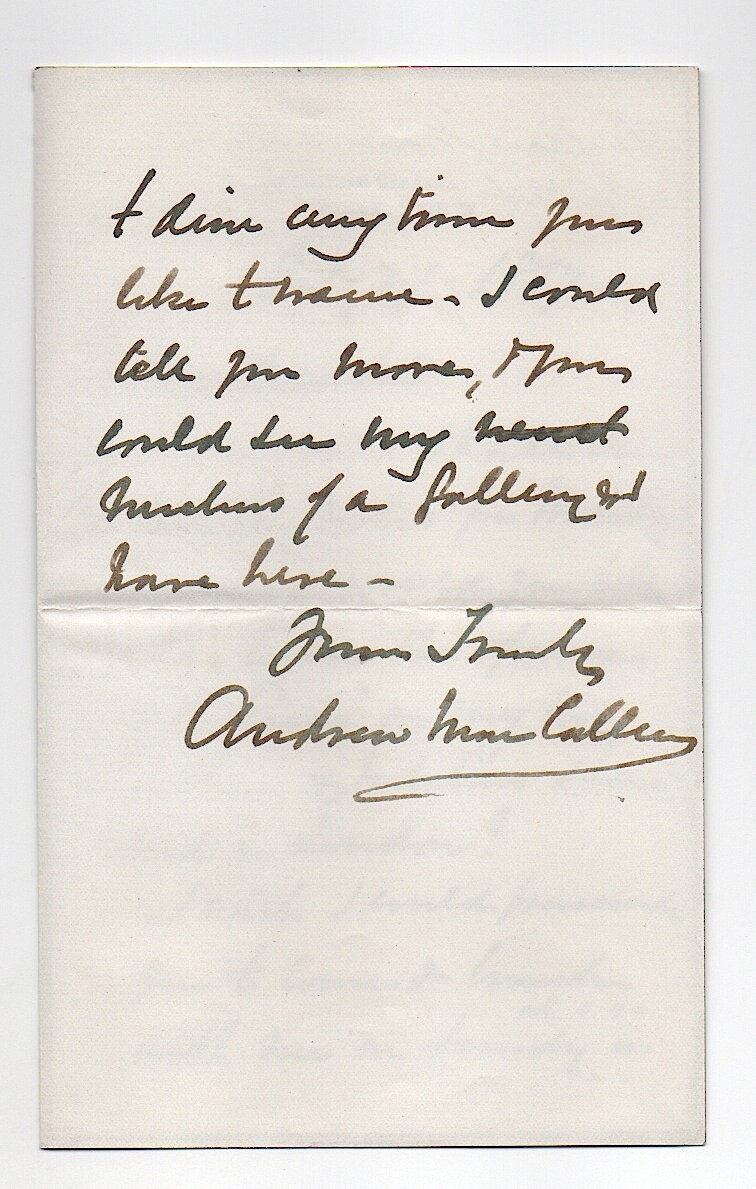 t dine any time you
like to name - I could
tell you more, & you
could see my
nucleus of a Gallery
have here -
Yours Truly
Andrew MacCallum